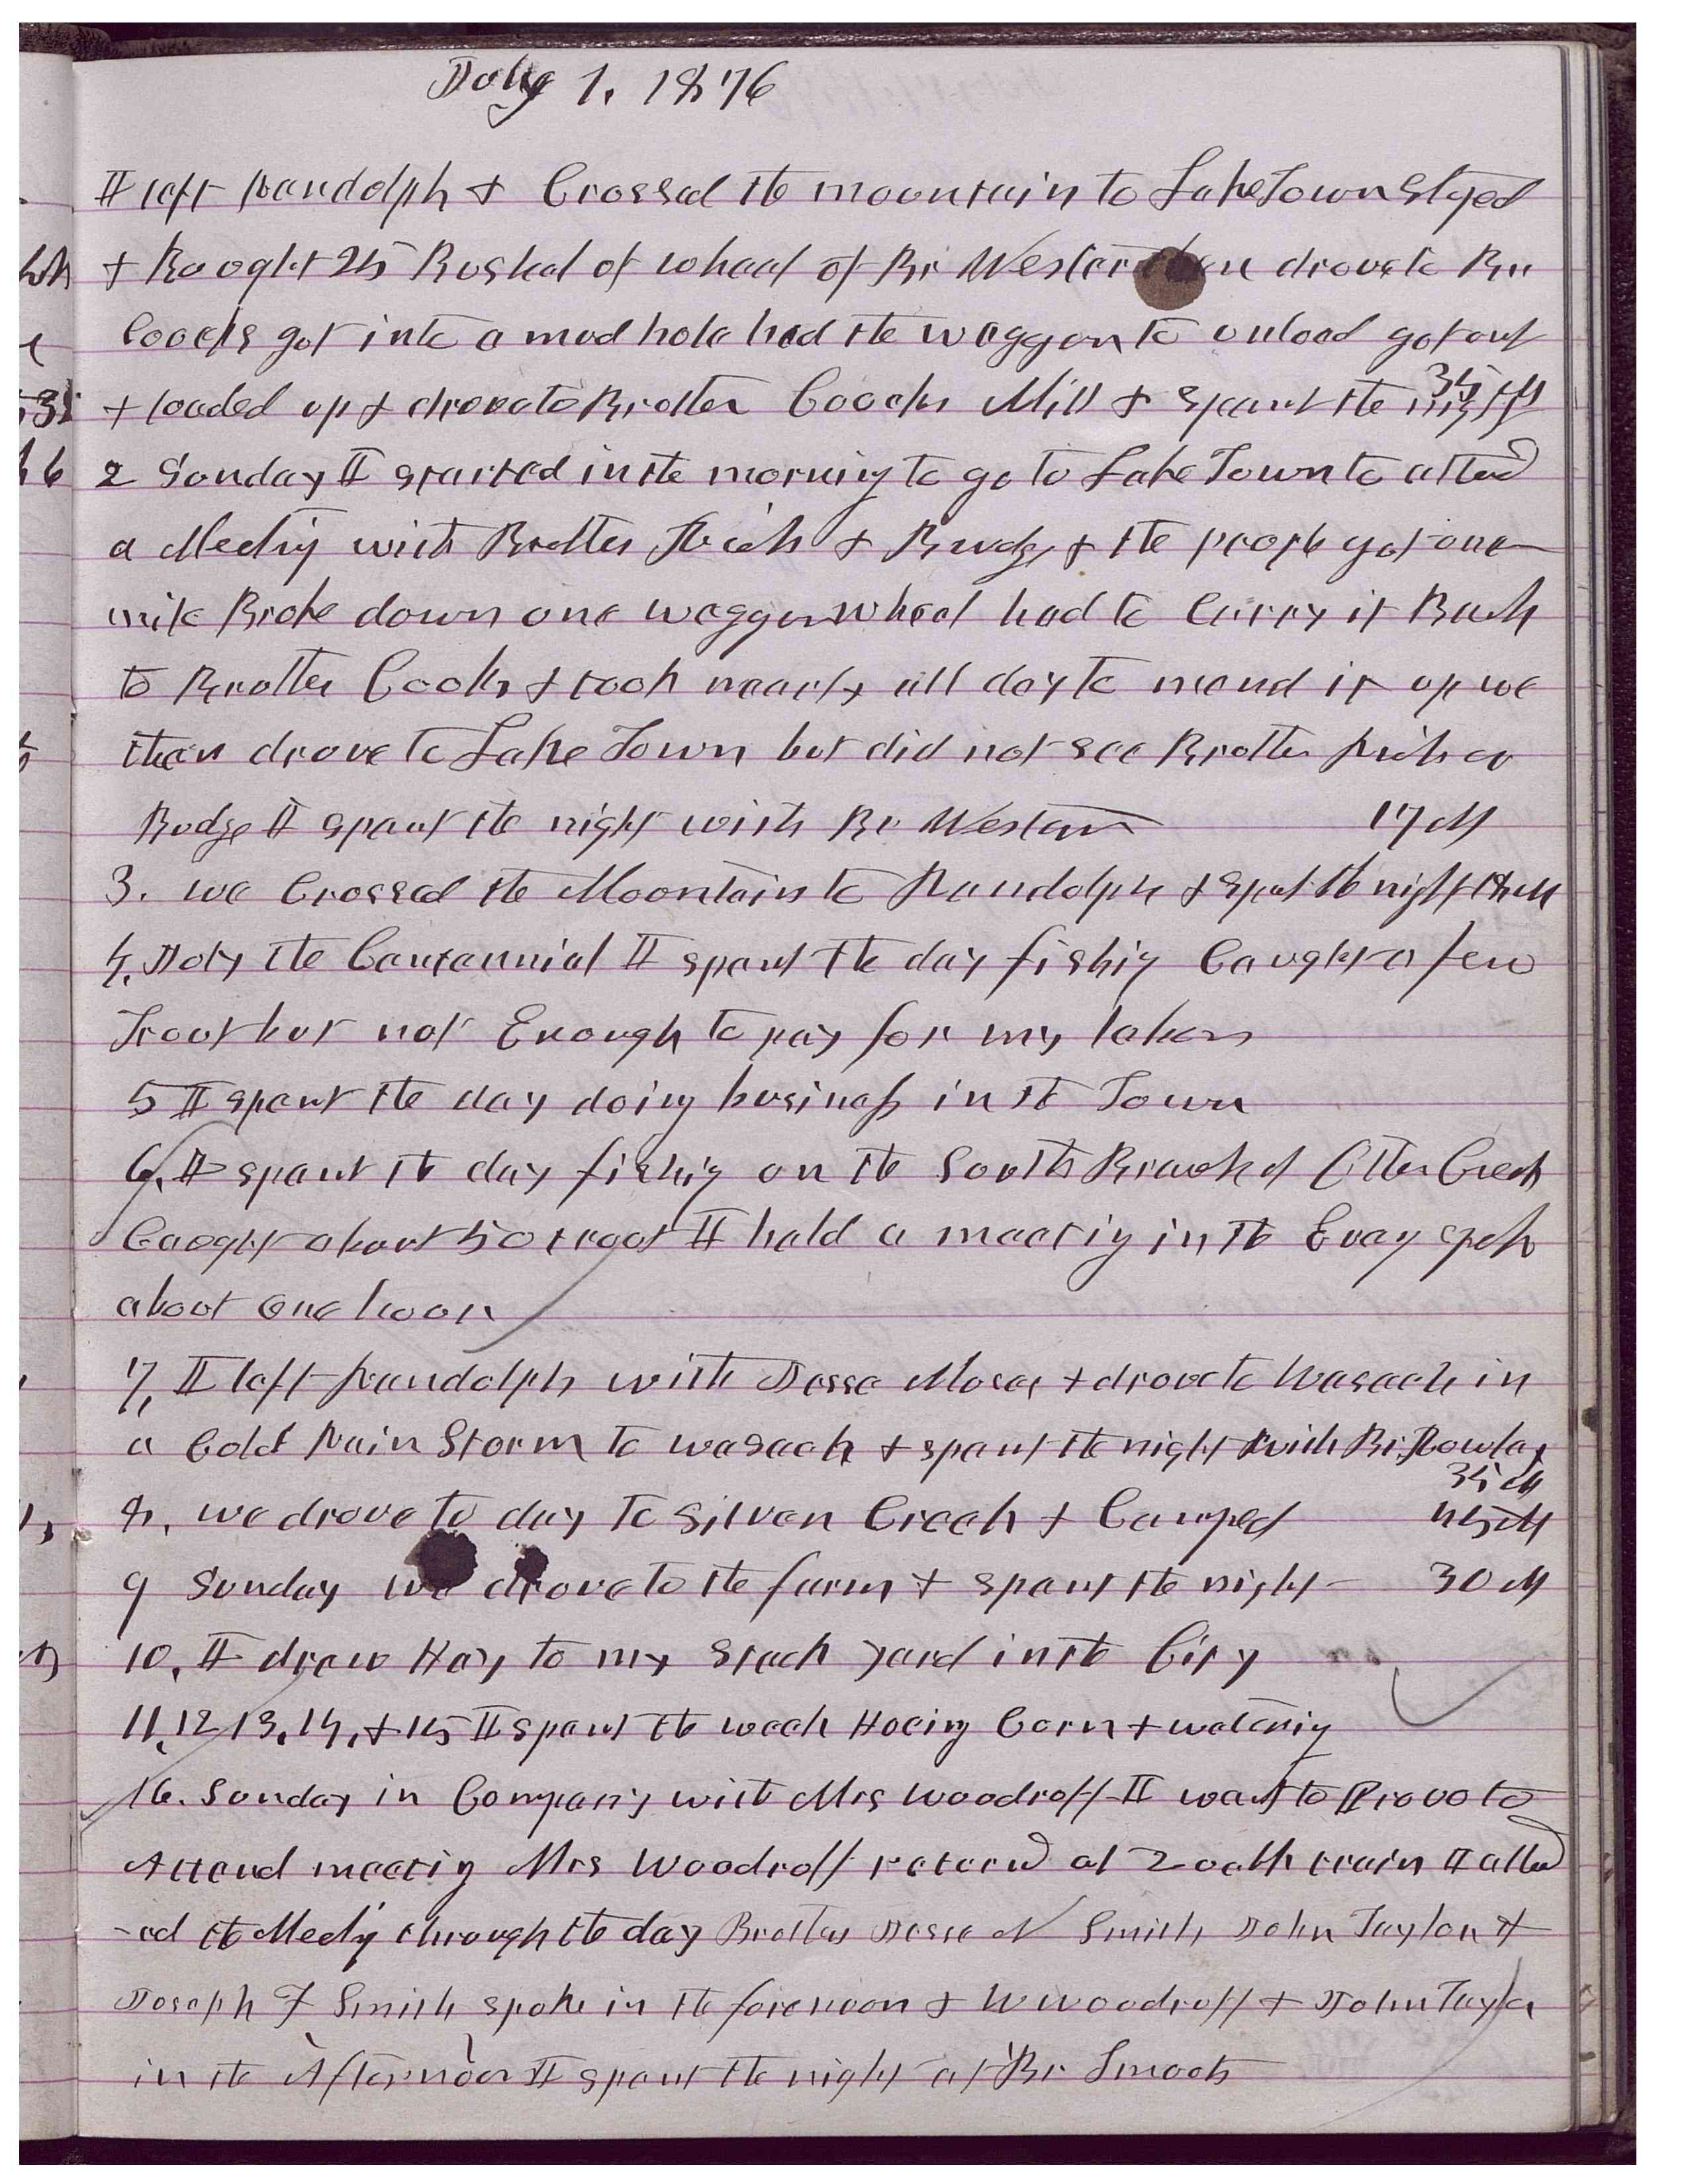 July 1, 1876
I left Randolph & Crossed the mountain to Lake Town Stoped
& Bought 25 Bushel of wheat of Br Weston then drove to Br
Cooks got into a mud hole had the waggon to unload got out
& loaded up & drove to Brother Cooks Mill & spent the night 35 M
2 Sunday I started in the morning to go to Lake Town to attend
a Meeting with Brother Rich & Budge & the people got one
mile Broke down one waggon wheel had to Carry it Back
to Brother Cooks & took nearly all day to mend it up we
then drove to Lake Town but did not see Brother Rich or
Budge I spent the night with Br Weston 17 M
3. we Crossed the Mountain to Randolph & spent the night 18 M
4, July the Centennial I spent the day fishing Caught a few
Trout but not Enough to pay for my labor
5 I spent the day doing business in the Town
6, I spent the day fishing on the South Branch of Otter Creek
Caught about 50 trout I held a meeting in the Eveng spok
about one hour
7, I left Randolph with Jesse Moses & drove to Wasach in
a Cold Rain Storm to wasach & spent the night with Br Rowley
35 M
8, we drove to day to Silver Creek & Camped 45 M
9 Sunday we drove to the farm & spent the night - 30 M
10, I drew Hay to my Stack yard in the City
11, 12 13, 14, & 15 I spent the week Hoeing Corn & watering
16. Sunday in Company with Mrs Woodruff I went to Provo to
Attend meeting Mrs Woodruff returnd at 2 oclk train I attend
-ed the Meeting through the day Brothers Jesse N Smith John Taylor &
Joseph F Smith spoke in the forenoon & W Woodruff & John Taylor
in the Afternoon I spent the night at Br Smoots